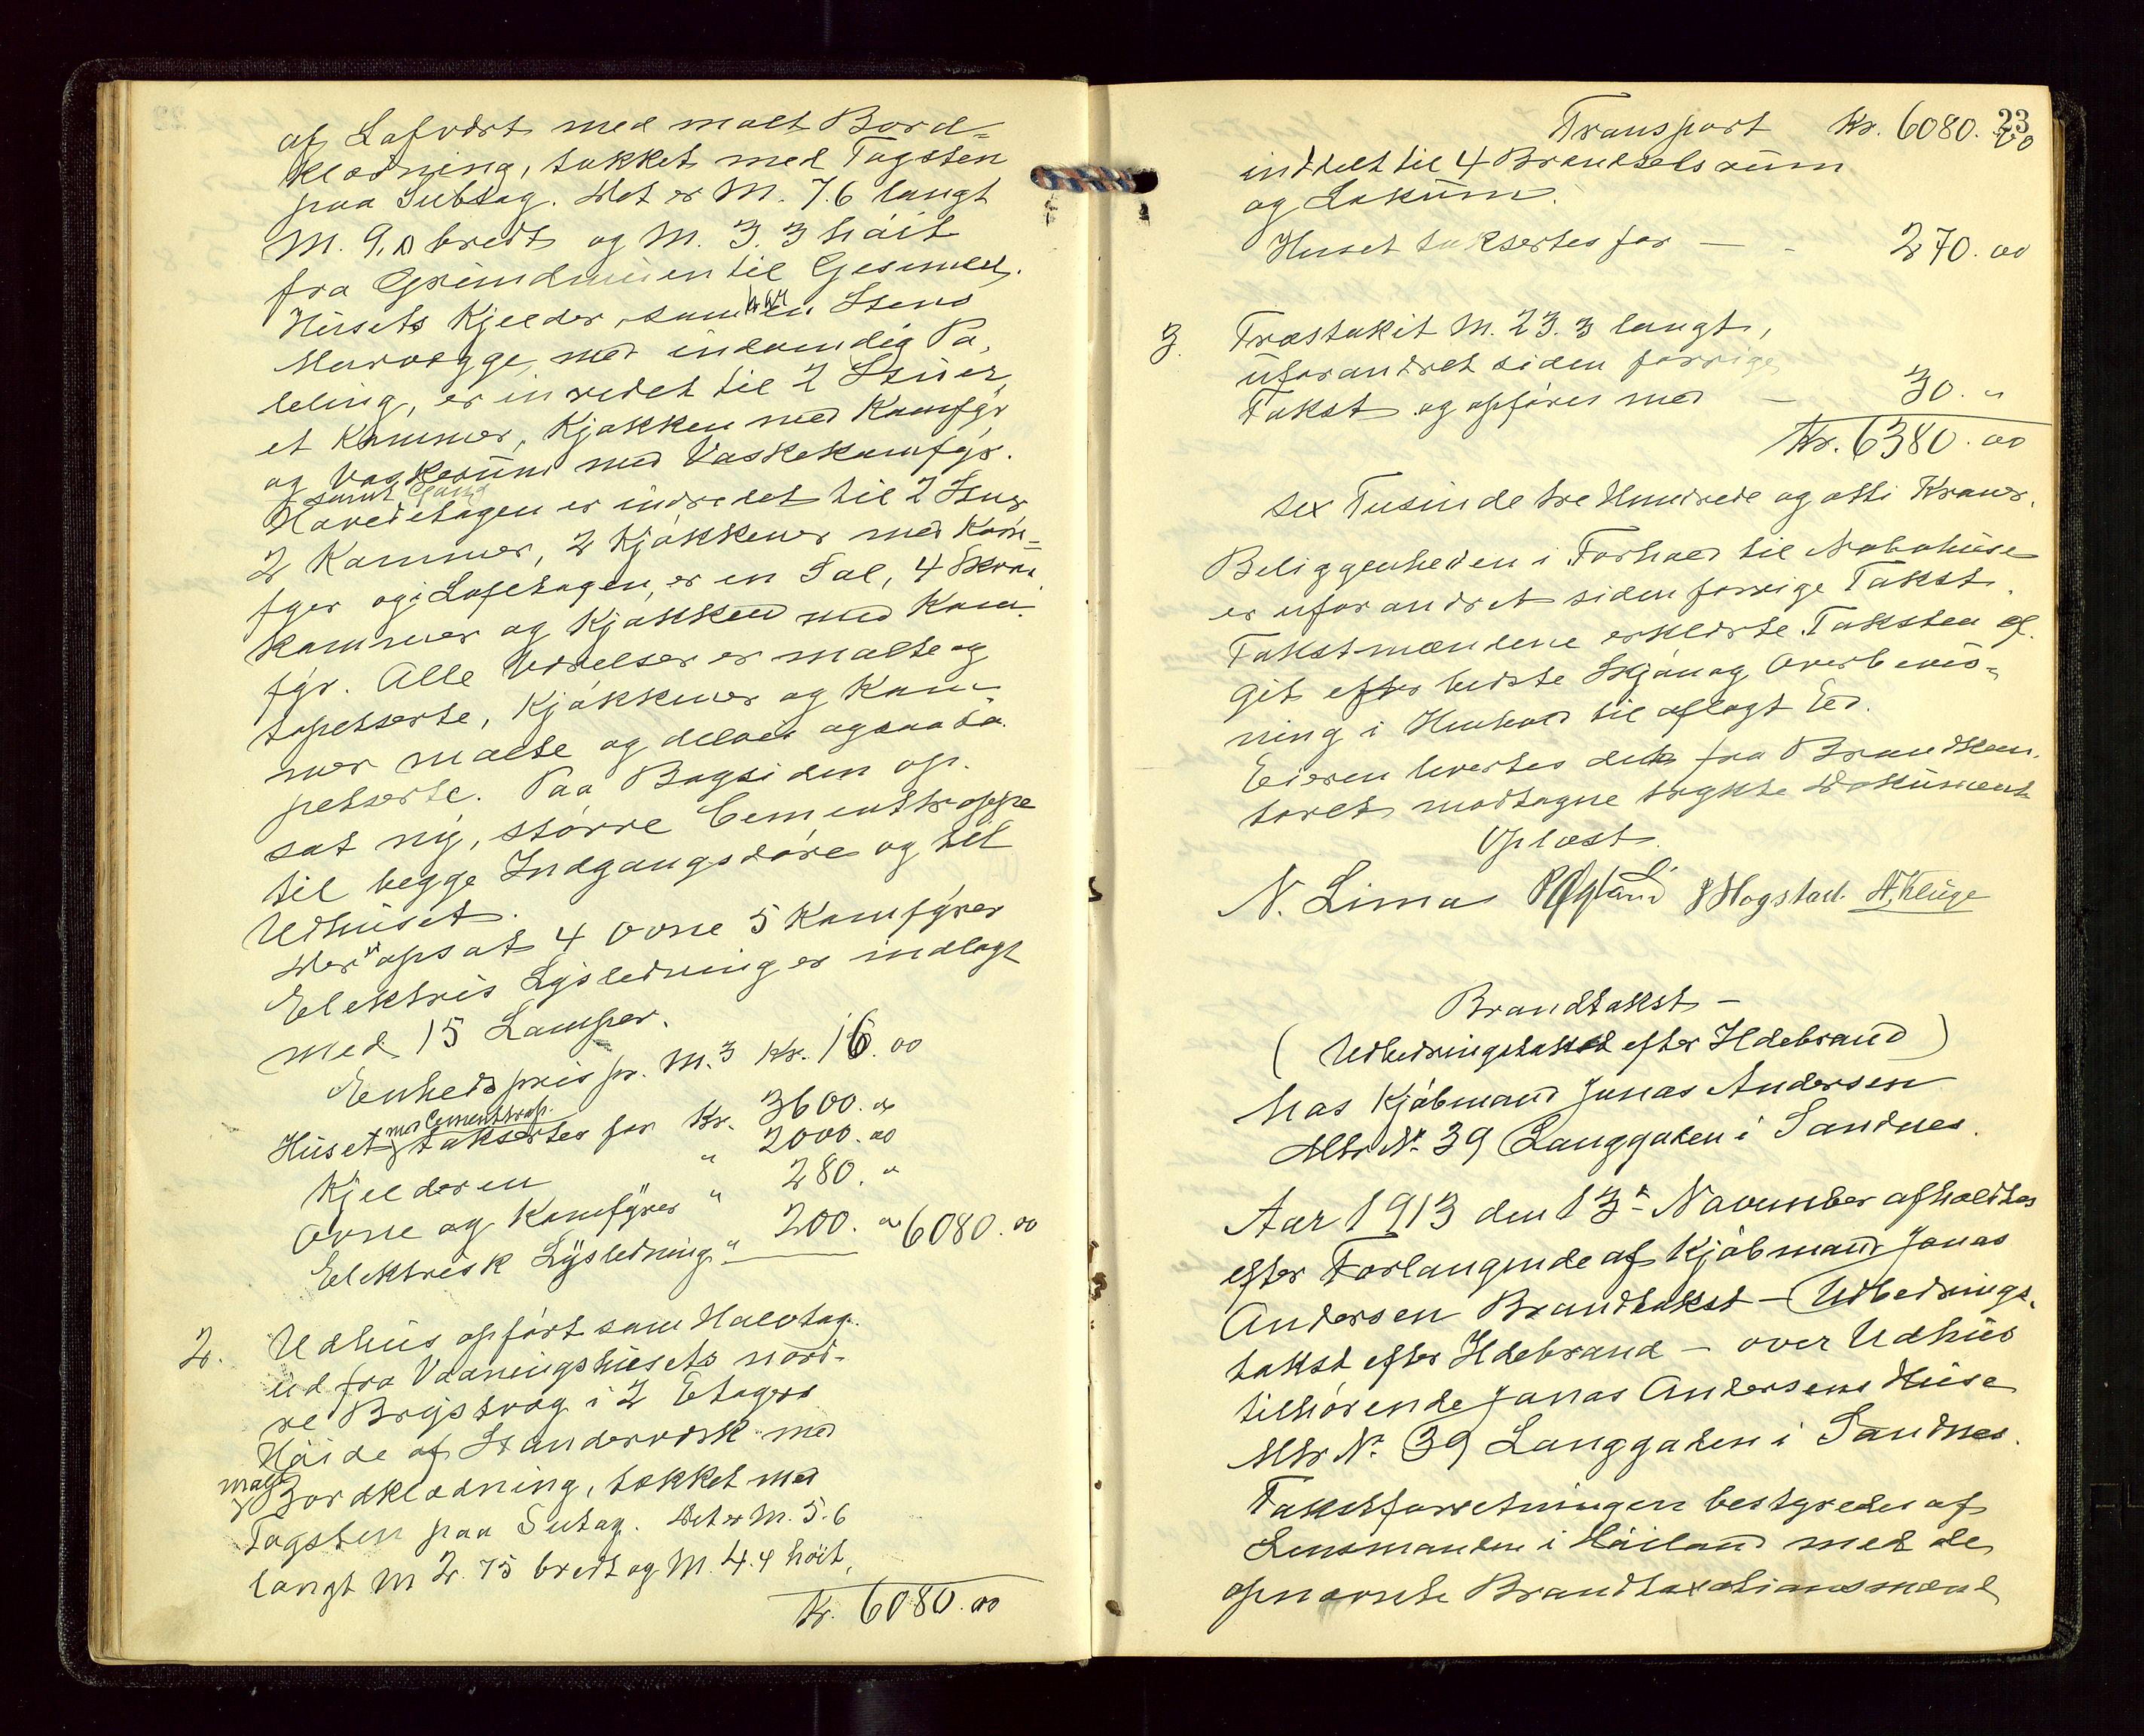 af Lafværk med malt Bord=
klædning, takket med Tagsten
paa Subtag. Det er M. 7.6 langt
M. 9.0 bredt og M. 3.3 höit
fra Grundmuren til Gesimsen.
Husets Kjelder, som har en Stens
Murvægge, med indvendig Pa,
leling, er inredet til 2 Stuer,
et Kammer, Kjøkken med Komfyr
og Vaskerum med Vaskekomfyr.
samt Gang
Hovedetagen er indredet til 2 Stuer
2 Kammer, 2 Kjøkkener med Kom=
fyer og i Loftetagen, er en Sal, 4 Skraa
kammer og Kjøkken med Kom
fyr. Alle Værelser er malte og
tapetserte, Kjøkkener og Kam-
mer malte og delvis ogsaa ta
petserte. Paa Bagsiden op-
sat ny, större Cementtrappe
til begge Indgangsdöre og til
Udhuset.
Der er opsat 4 Ovne 5 Komfyrer
Elektris Lysledning er indlagt
med 15 Lamper.
Enhedspris pr. M.3 Kr. 16.00
Huset med Cementtrap. taksertes for Kr. 3600.00
Kjelderen " 2000.00
Ovne og Komfyrer " 280. "
Elektrisk Lysledning " 200. 00 6080.00
2. Udhus opfört som Halvtag
ud fra Vaaningshusets nord-
re Brystvæg i 2 Etagers
Höide af Standerværk med
malt Bordklædning, takket med
Tagsten paa Sutag. Det er M. 5.6
langt M 2.75 bredt og M. 4.4 höit,
Kr. 6080.00
23
Transport Kr. 6080.00
inddelt til 4 Brændselsrum
og Lokum.
Huset taksertes for — - 270.00
3. Træstakit M. 23.3 langt,
uforandret siden forrige
Takst og opföres med — 30. "
Kr. 6380.00
sex Tusinde tre Hundrede og otti Kroner.
Beliggenheden i Forhold til Nabohuse
er uforandret siden forrige Takst.
Takstmændene erklærte Taksten af
git efter bedste Skjön og Overbevis=
ning i Henhold til aflagt Ed.
Eieren levertes det fra Brandkon,
toret modtagne trykte Dokument
Oplæst.
N. Lima Høyland J Hogstad. A. Kluge
Brandtakst —
( Udbedringstakst efter Ildebrand )
hos Kjöbmand Jonas Andersen
Mtr Nr. 39 Langgaten i Sandnes.
Aar 1913 den 13de November afholdtes
efter Forlangende af Kjöbmand Jonas
Andersen Brandtakst — Udbedrings,
takst efter Ildebrand — over Udhus
tilhörende Jonas Andersens Huse
Mtr Nr. 39 Langgaten i Sandnes.
Takstforretningen bestyredes af
Lensmanden i Höiland med de
opnævnte Brandtaxationsmænd